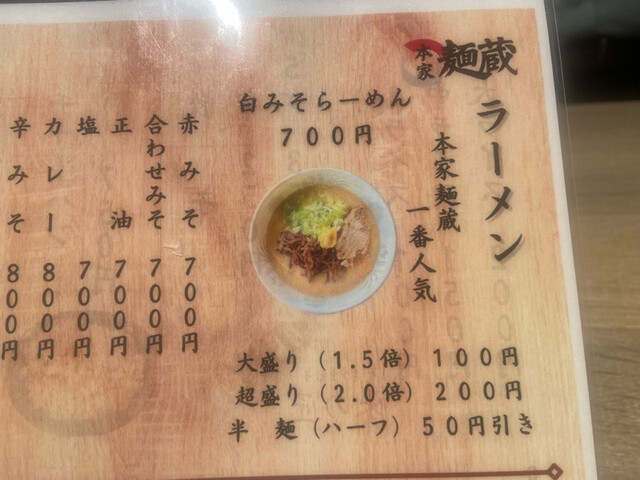 本家 麺蔵
ラーメン
本家麺蔵
一番人気
白みそらーめん
700円
大盛り（1.5倍）100円
超盛り（2.0倍）200円
半 麺（ハーフ）50円引き
赤みそ 700円
合わせみそ 700円
正油 700円
塩 700円
カレー 800円
辛みそ 800円